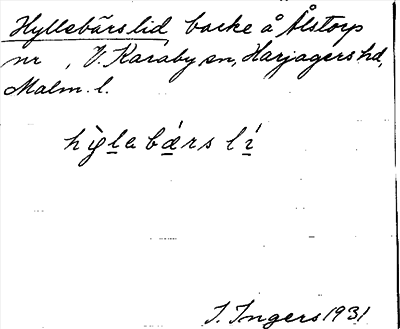 Hyllebärslid backe å Ålstorp
nr , V. Karaby sn, Harjagers hd,
Malm. l.
hỳ̠lebä́rslí
I. Ingers 1931